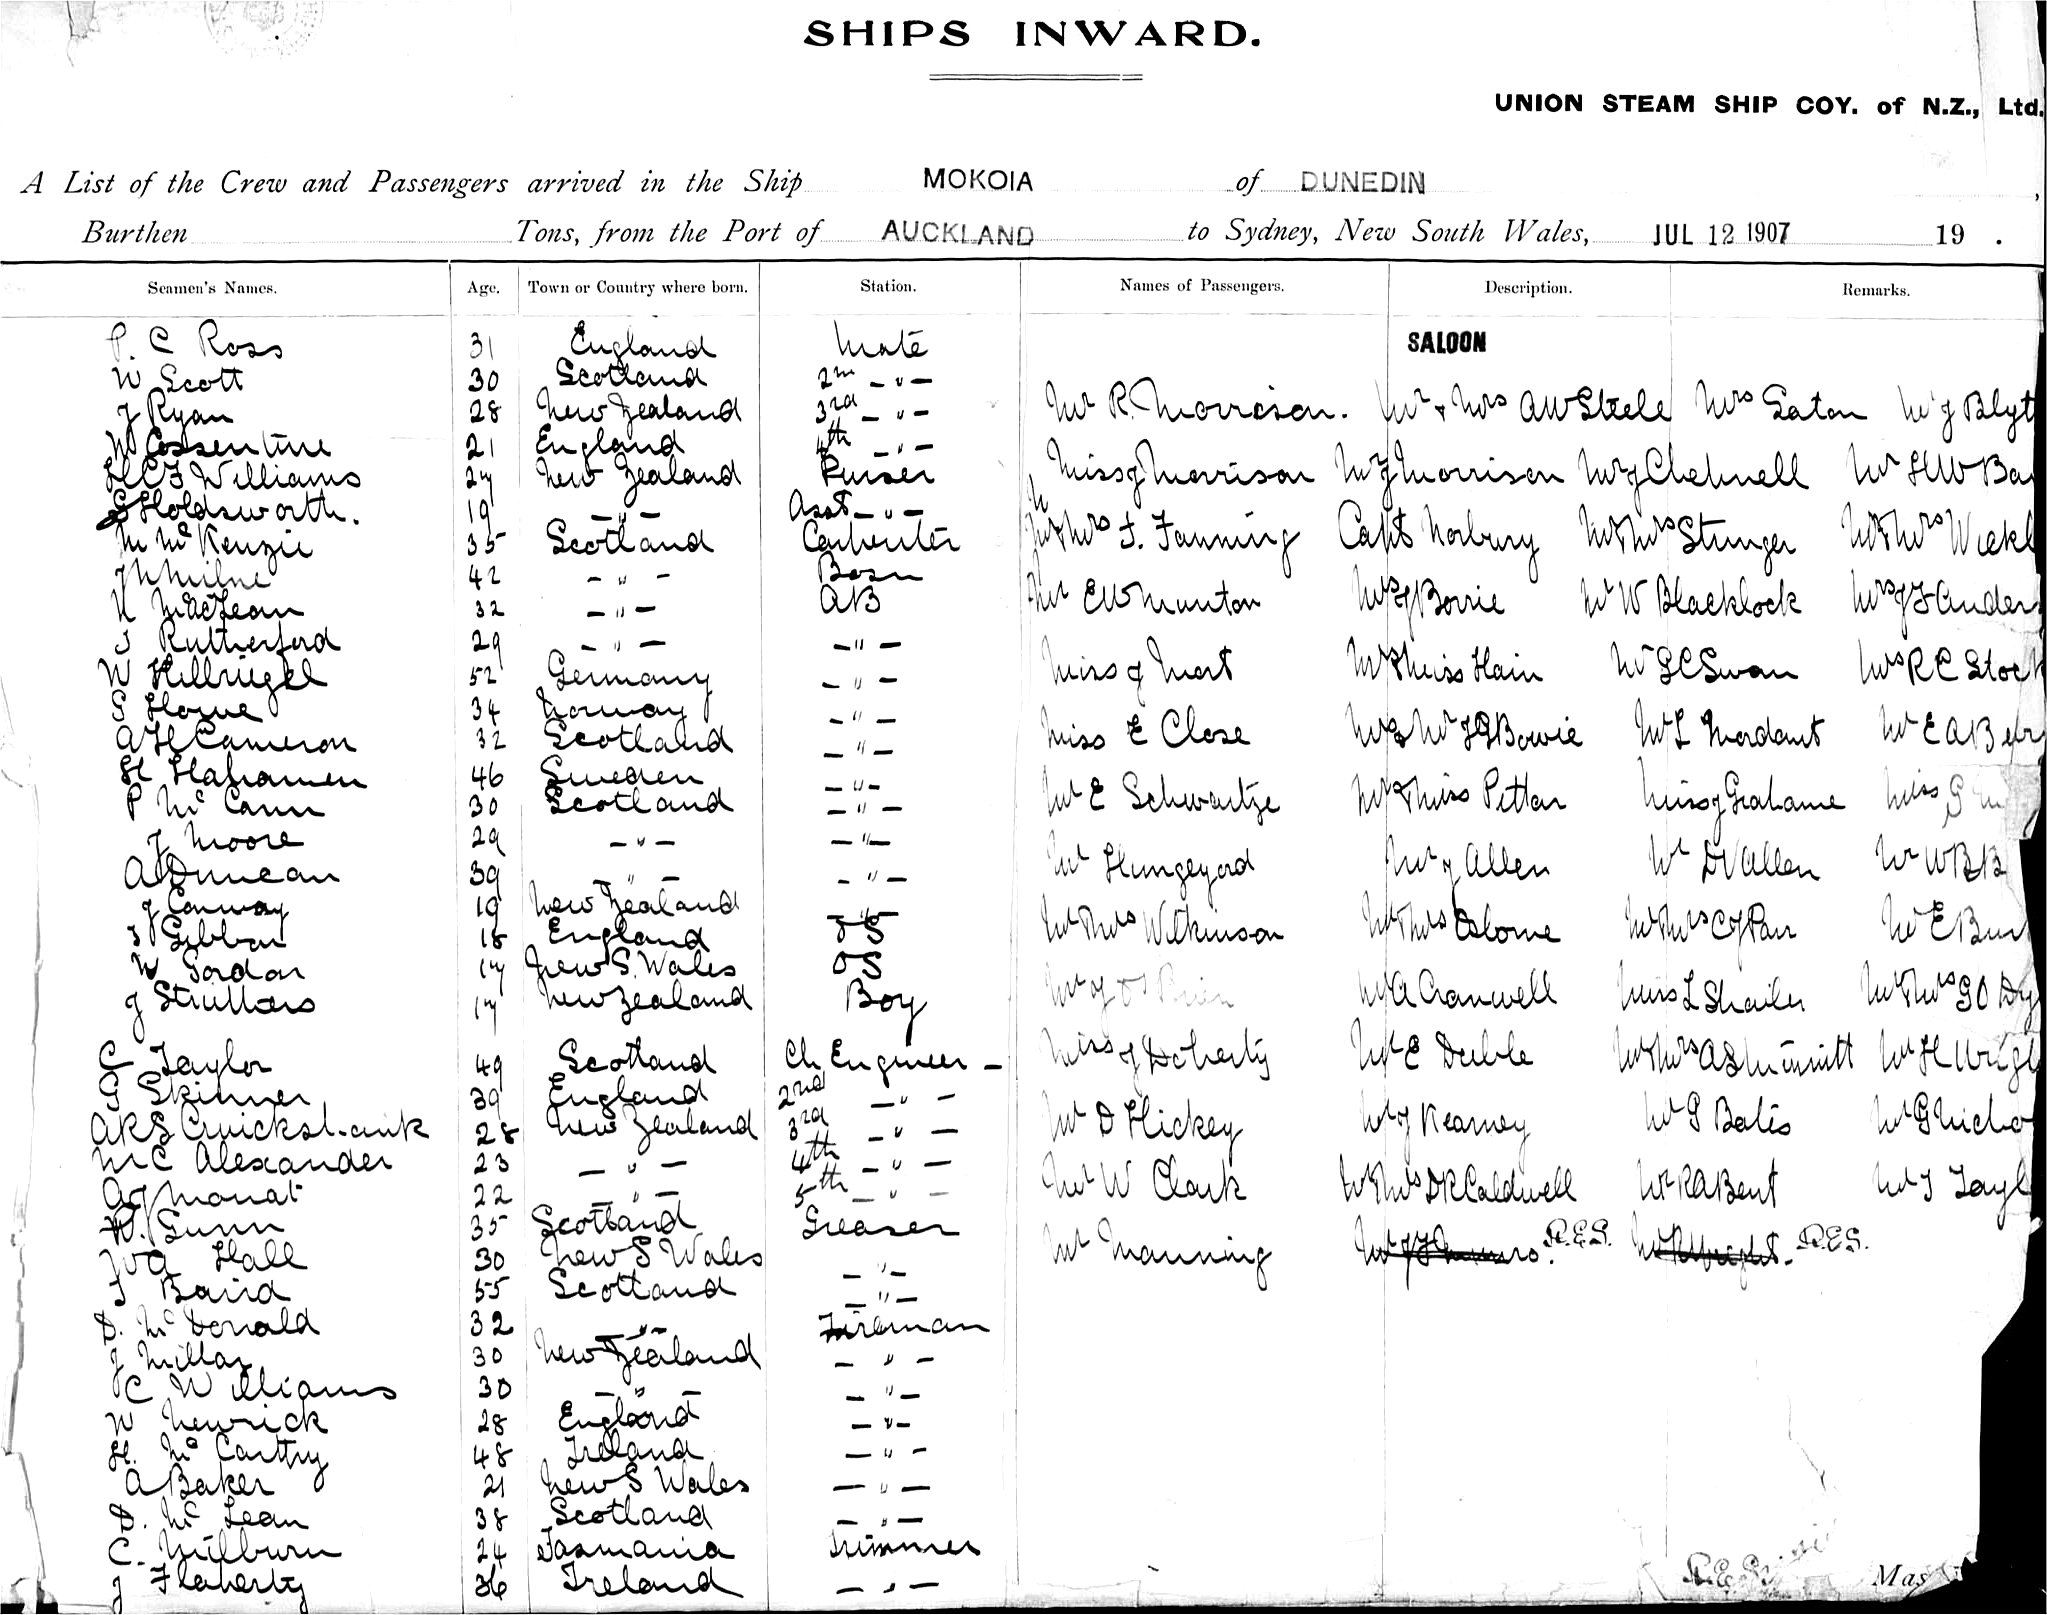 SHIPS INWARD.
UNION STEAM SHIP COY. of N.Z., Ltd.
A List of the Crew and Passengers arrived in the Ship MOKOIA of DUNEDIN,
Burthen Tons, from the Port of AUCKLAND to Sydney, New South Wales, JUL 12 1907 19 .
Seamen's Names. Age. Town or Country where born. Station. Names of Passengers. Description. Remarks.
SALOON
P. C Ross 31 England Mate
W Scott 30 Scotland 2nd - " -
J Ryan 28 New Zealand 3rd - " - Mr R. Morrison. Mr & Mrs AW Steele Mrs Eaton Mr J Blyt
W Cossentine 21 England 4th - " -
H C F Williams 27 New Zealand Purser Miss J Morrison Mr J Morrison Mr J Chennell Mr H W Ba
G Holdsworth. 19 - " - Asst - " -
M McKenzie 35 Scotland Carpenter Mr & Mrs F. Fanning Capt Norbury Mr & Mrs Stringer Mr & Mrs
J W Milne 42 - " - Bosn
N MacLean 32 - " - AB Mr EW Manton Mrs J Borrie Mr W Blacklock Mrs J F Ander
J Rutherford 29 - " - - " -
W Hillriegel 52 Germany - " - Miss J Mort Mr & Miss Hain Mr G C Swan Mrs R C Stock
34 Norway - " -
A H Cameron 32 Scotland - " - Miss E Close Mr & Mrs Bowie Mr L Mordaunt Mr E A
H 46 Sweden - " -
P McCann 30 Scotland - " - Mr E Schwartze Mr & Miss Pittar Miss J Grahame Miss G
J Moore 29 - " - - " -
A Duncan 39 - " - - " - Mr Hungeyord Mr J Allen Mr D V Allen Mr W B B
J Conway 19 New Zealand - " -
J Gibbon 18 England OS Mr & Mrs Wilkinson Mr & Mrs Mr & Mrs C J Parr Mr E Bur
W Gordon 17 New S. Wales OS
J Struthers 17 New Zealand Boy Mr J O'Brien Mr A Cranwell Miss L Shailer Mr & Mrs G O
C Taylor 49 Scotland Ch Engineer - Miss J Doherty Mr E Mr & Mrs A S Mr H Wrigh
G Skinner 39 England 2nd - " -
AKS Cruickshank 28 New Zealand 3rd - " - Mr D Hickey Mr J Kearney Mr G Bates Mr G Nicho
M C Alexander 23 - " - 4th - " -
A J Mouat 22 - " - 5th - " - Mr W Clark Mr & Mrs D R Caldwell Mr R A Bent Mr T Tayl
W. Gunn 35 Scotland Greaser
W A Hall 30 New S Wales - " - Mr Manning Mr J F Munro. R.E.S. Mr R Wright. R.E.S.
J Baird 55 Scotland - " -
D. McDonald 32 - " - Fireman
J Millar 30 New Zealand - " -
C Williams 30 - " - - " -
W Newrick 28 England - " -
H. McCarthy 48 Ireland - " -
A Baker 21 New S Wales - " -
D. McLean 38 Scotland - " -
C. Milburn 24 Tasmania Trimmer
J Flaherty 36 Ireland - " -
Mas